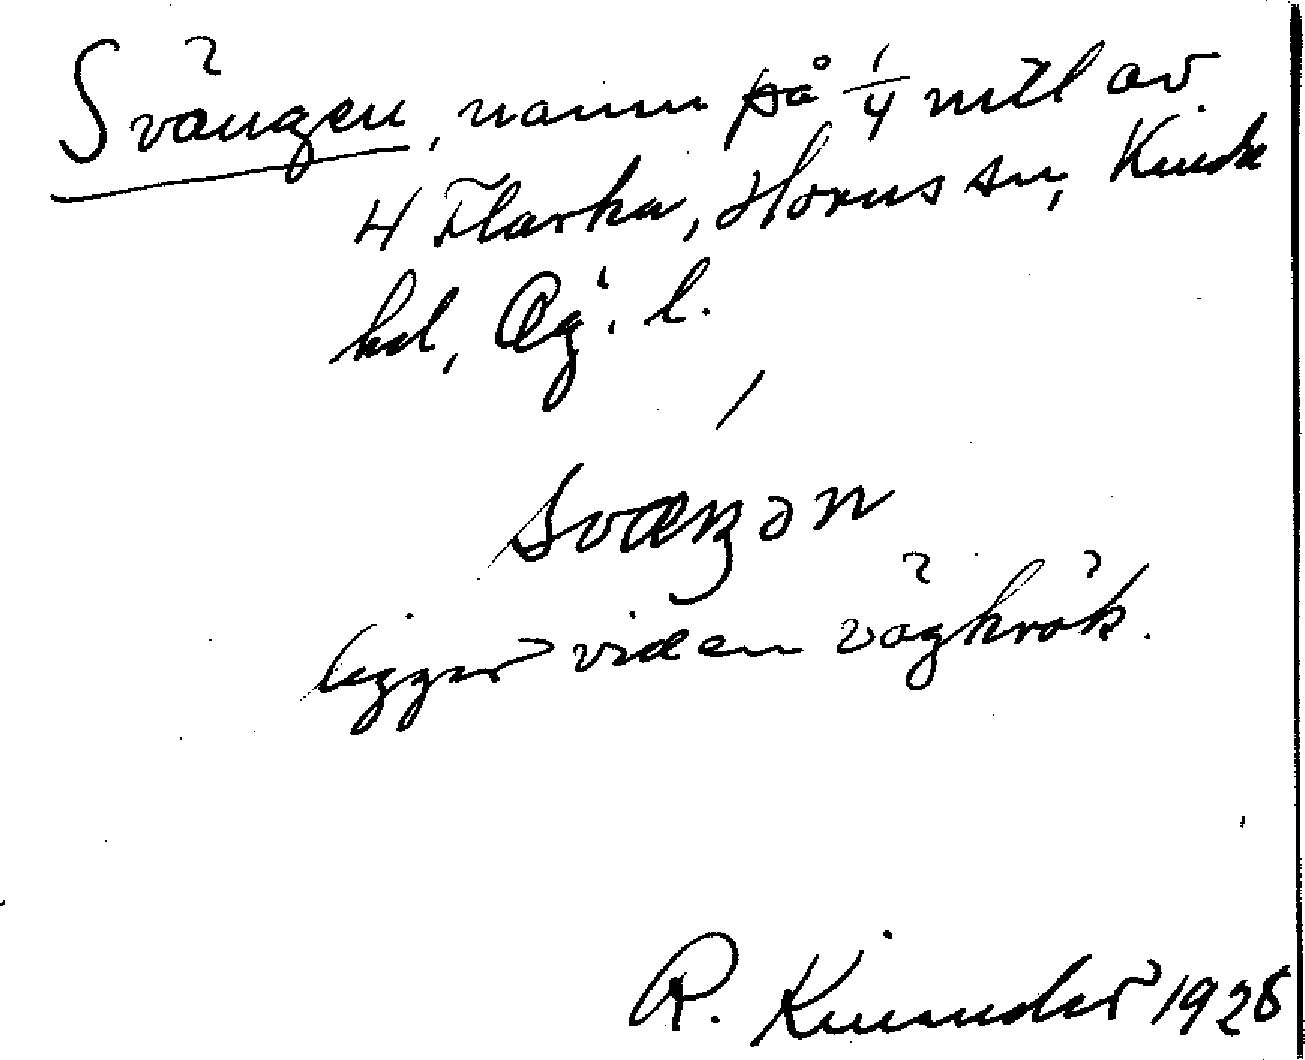 Svängen, namn på 1/4 mtl av
4 Flarka, Horns sn, Kinda
hd, Ög. l.
svæŋən
ligger vid en vägkrök.
R. Kinnander 1928